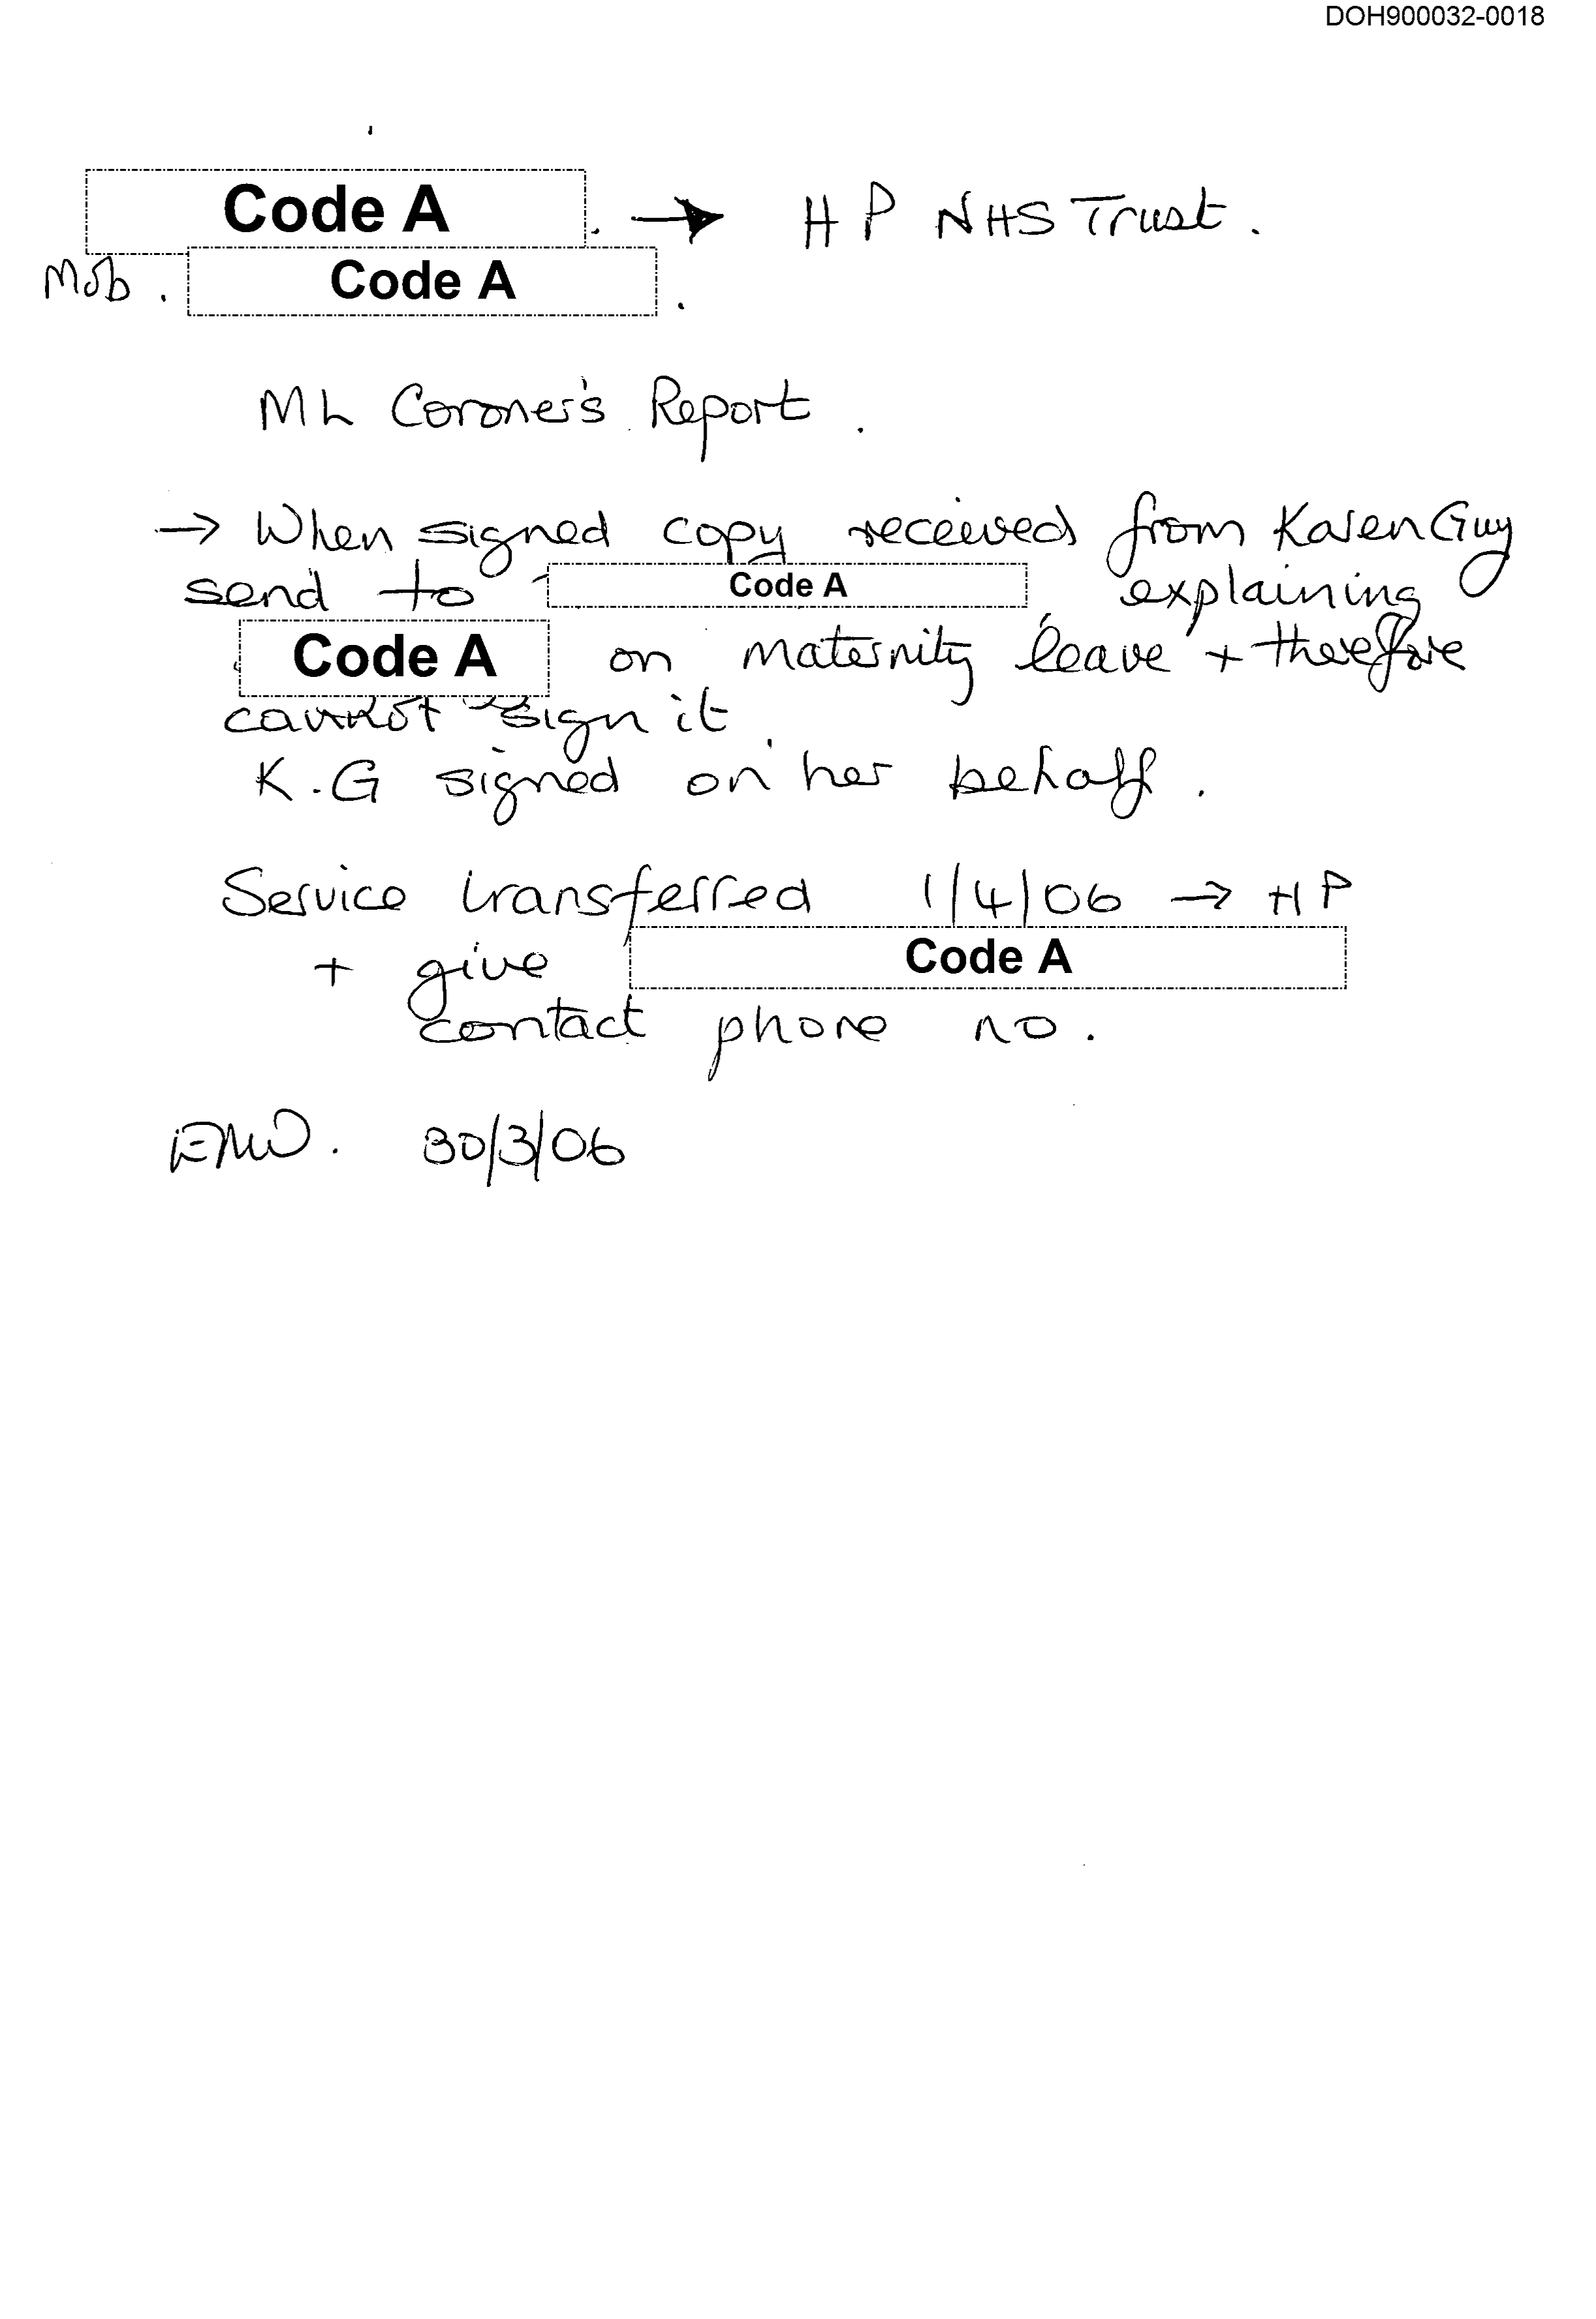 DOH900032-0018
Code A . → H P NHS Trust .
Mob . Code A .
ML Coroner's Report .
→ When signed copy received from Karen Guy
send to Code A explaining
Code A on maternity leave + therefore
cannot sign it
K.G signed on her behalf .
Service transferred 1/4/06 → HP
+ give Code A
contact phone no .
EMW . 30/3/06